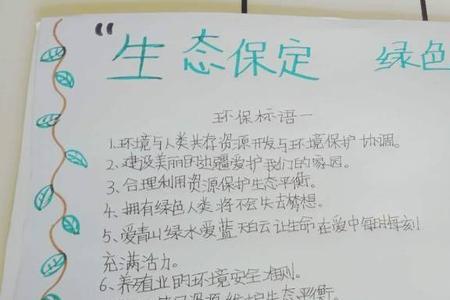 “生态保定 绿色
环保标语一
1、环境与人类共存资源开发与环境保护协调。
2、建设美丽的边疆爱护我们的家园。
3、合理利用资源保护生态平衡。
4、拥有绿色人类将不会失去梦想。
5、爱青山绿水爱蓝天白云让生命在爱中每时每刻
充满活力。
6、养殖业的环境安全准则。
资源 维护生态平衡。